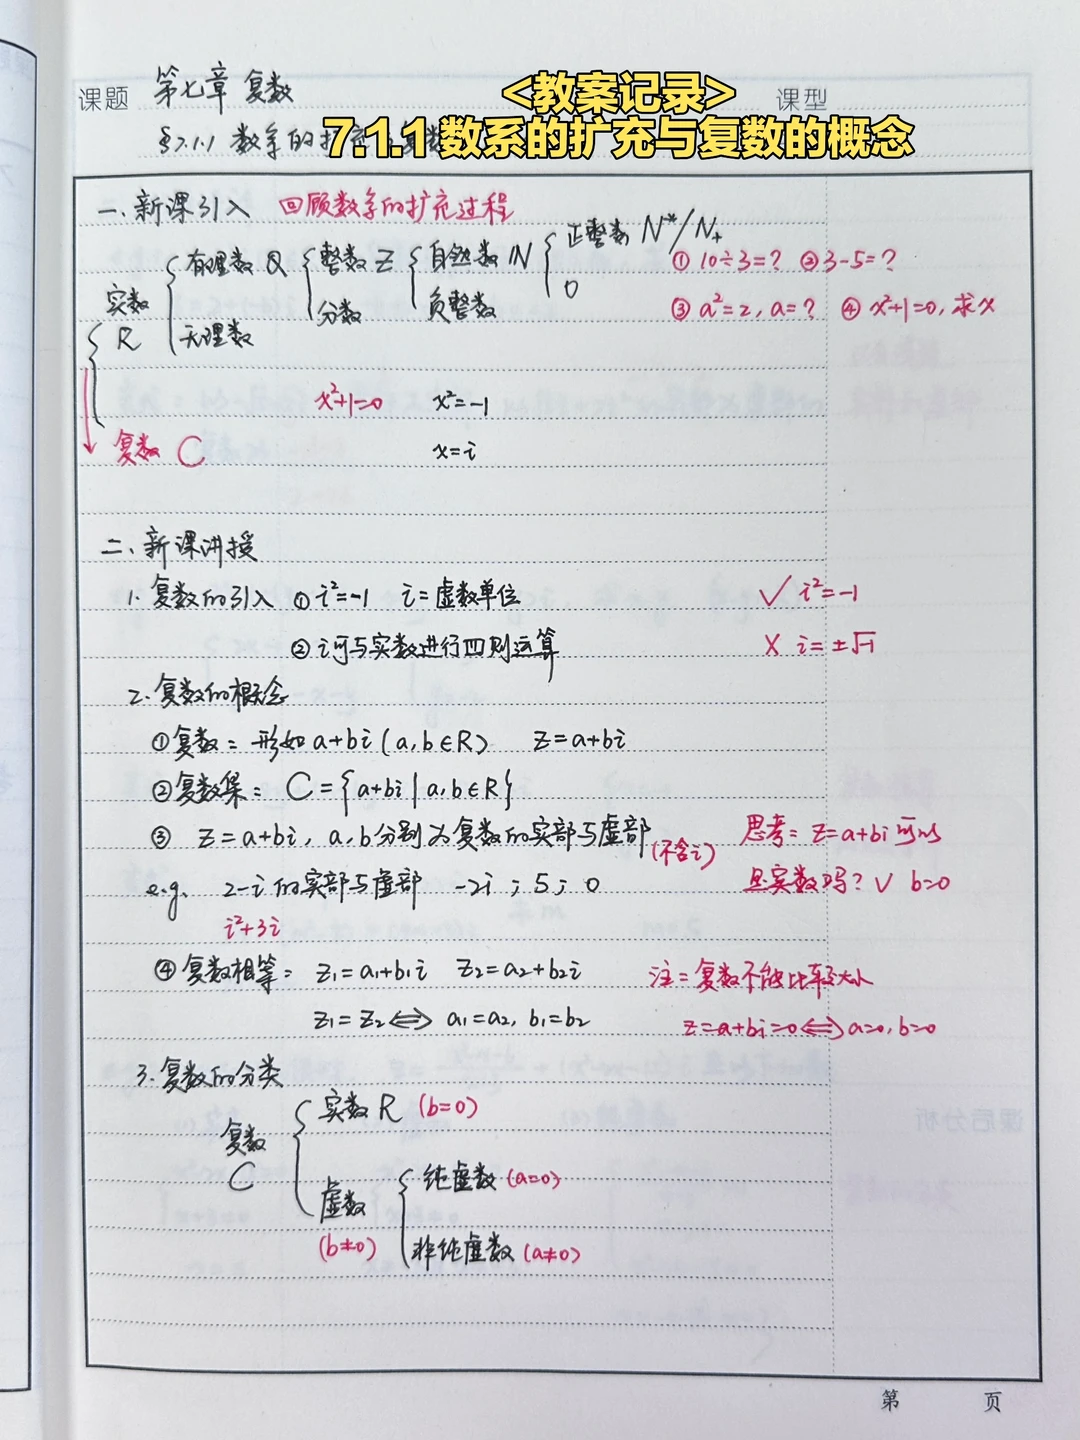 <教案记录>
7.1.1数系的扩充与复数的概念
课题 第七章 复数 课型
§7.1.1 数系的扩充
一、新课引入 回顾数系的扩充过程
实数 R { 有理数 Q { 整数 Z { 自然数 N { 正整数 N*/N+
0
负整数
分数
无理数
① 10÷3=? ② 3-5=?
③ a²=2, a=? ④ x²+1=0, 求x
x²+1=0 x²=-1
复数 C x=i
二、新课讲授
1. 复数的引入 ① i²=-1 i=虚数单位 ✓ i²=-1
② i可与实数进行四则运算 × i=±√-1
2. 复数的概念
①复数: 形如 a+bi (a,b∈R) z=a+bi
②复数集: C={a+bi|a,b∈R}
③ z=a+bi, a,b分别为复数的实部与虚部(不含i)
思考: z=a+bi 可以
是实数吗? ✓ b=0
e.g. 2-i 的实部与虚部 -2i ; 5 ; 0
i²+3i
④复数相等: z₁=a₁+b₁i z₂=a₂+b₂i
注: 复数不能比较大小
z₁=z₂⟺ a₁=a₂, b₁=b₂
z=a+bi=0⟺a=0, b=0
3. 复数的分类
复数 C { 实数 R (b=0)
虚数 (b≠0) { 纯虚数 (a=0)
非纯虚数 (a≠0)
课后分析
第 页